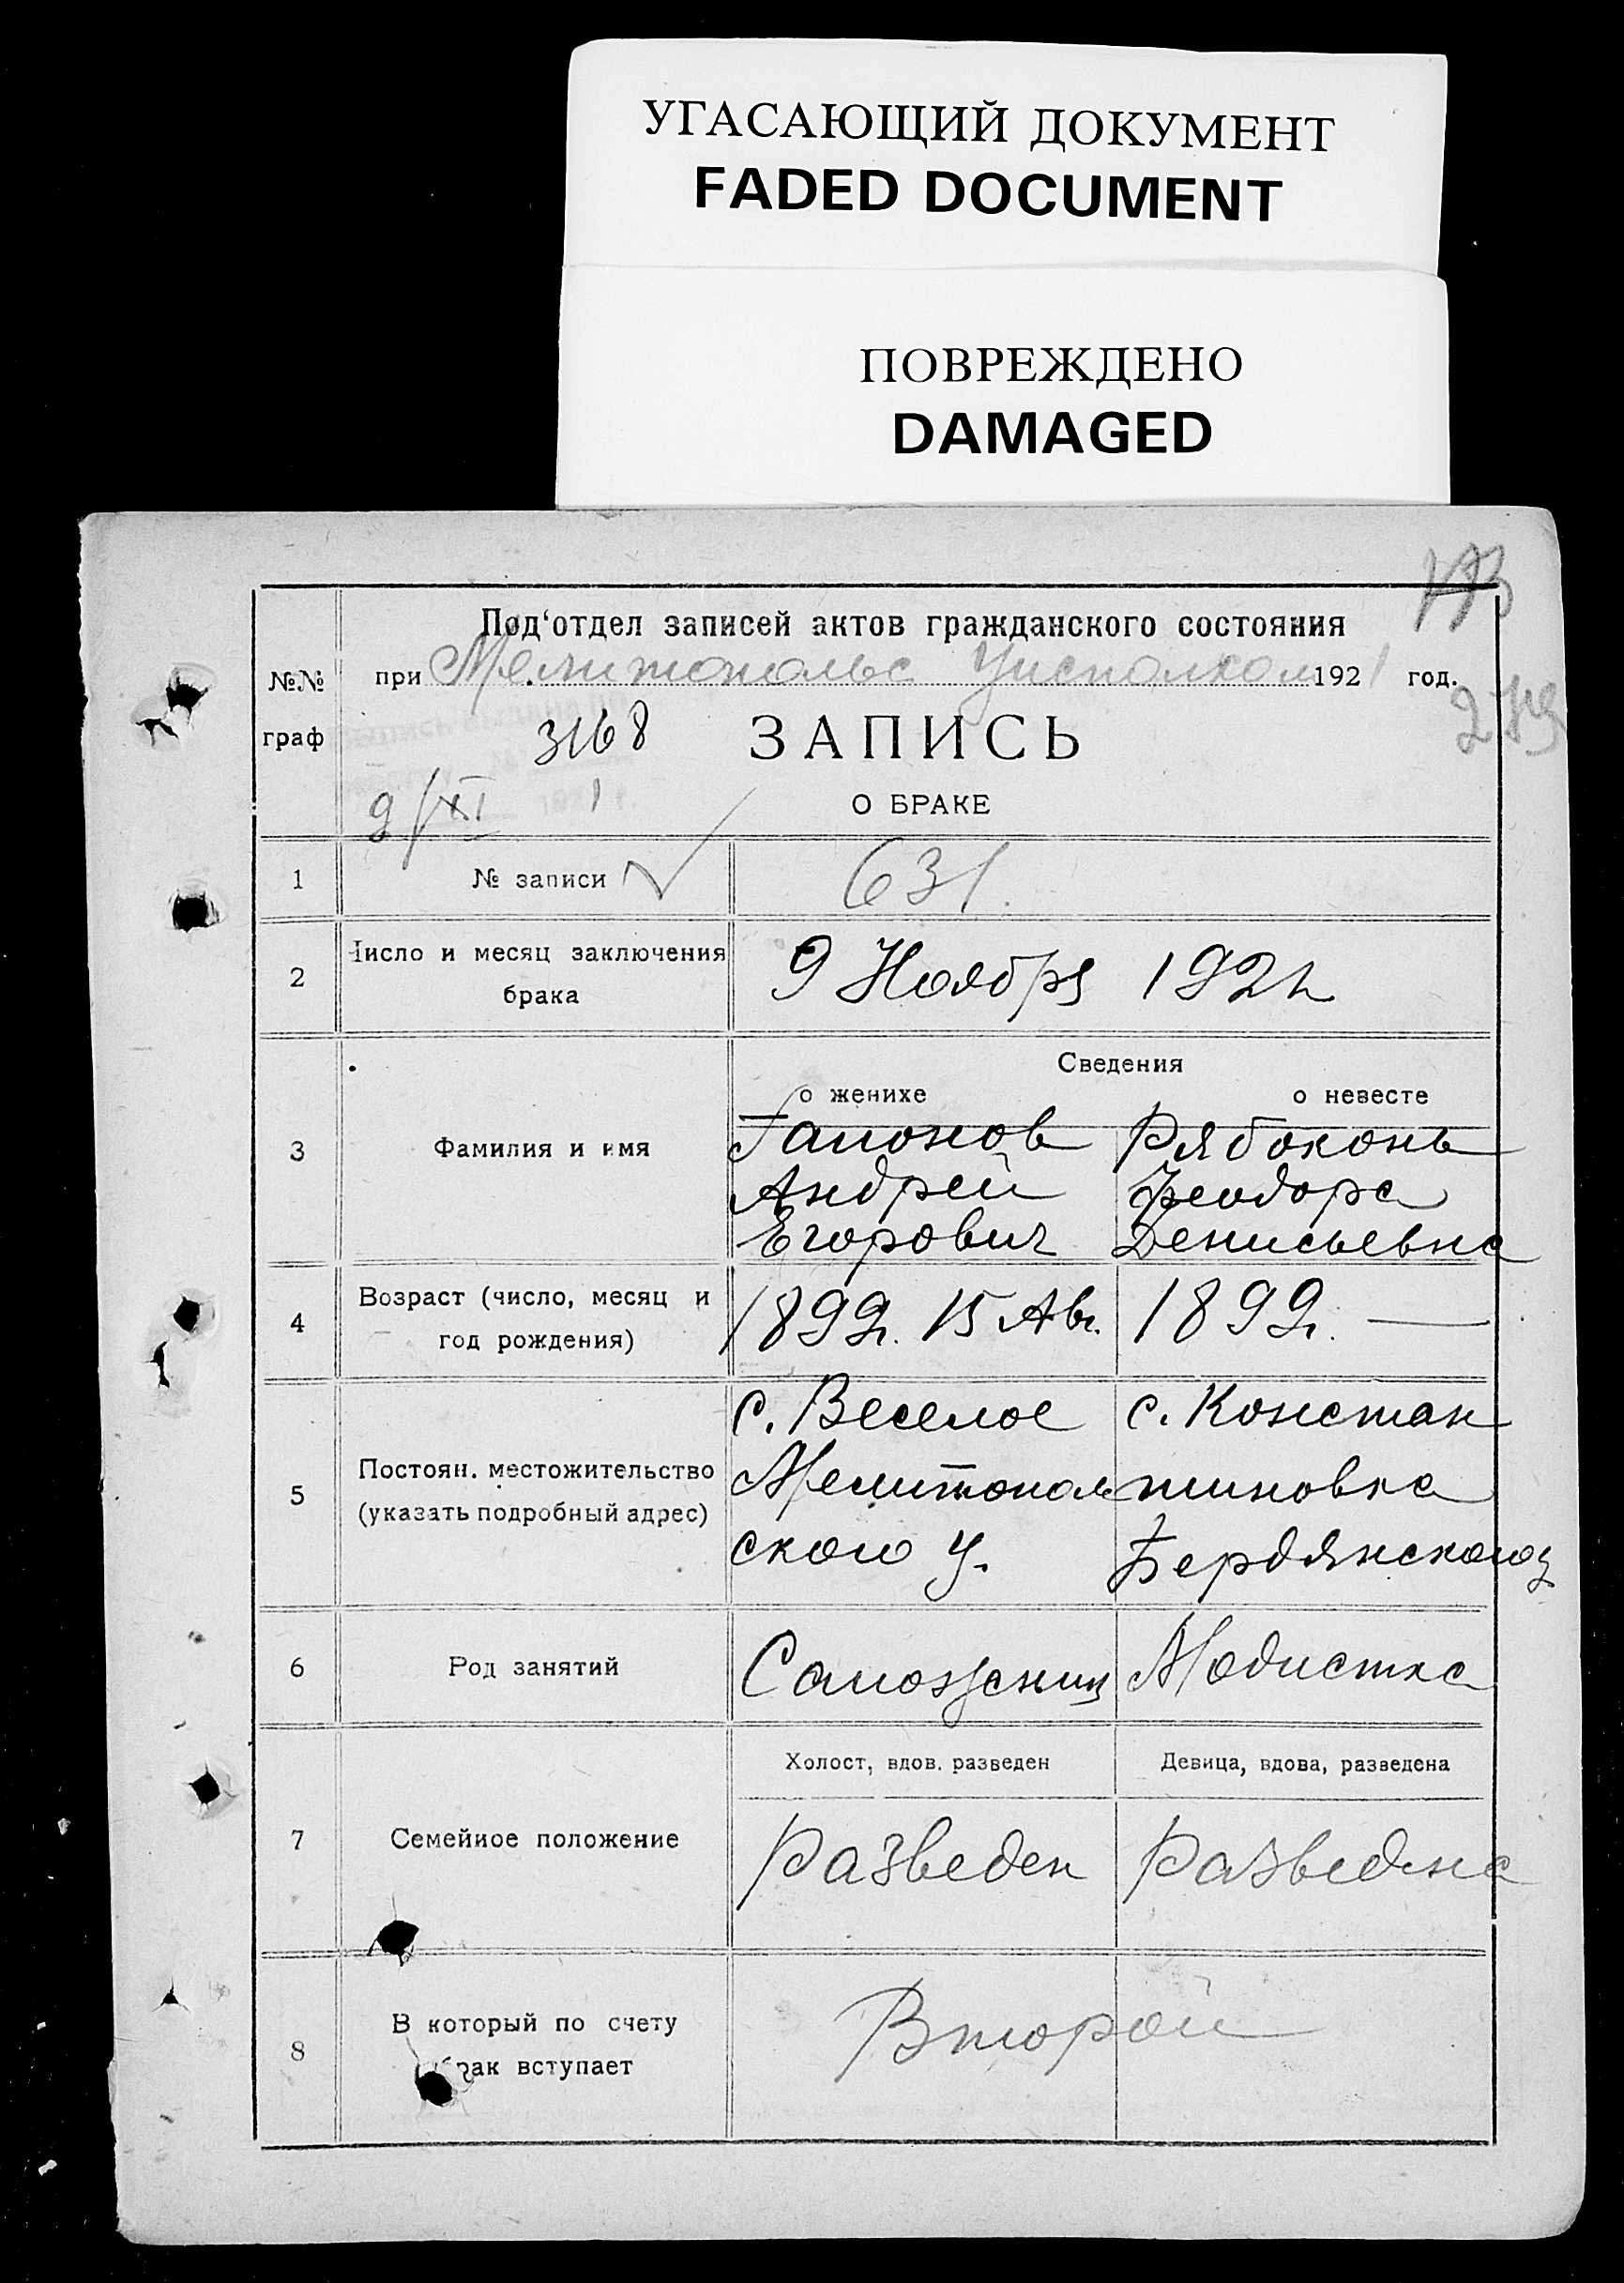 УГАСАЮЩИЙ ДОКУМЕНТ
FADED DOCUMENT
ПОВРЕЖДЕНО
DAMAGED
Под‘отдел записей актов гражданского состояния
№№ граф
при Мелитопольс Уисполком 1921 год.
3168 ЗАПИСЬ
9/XI 1
О БРАКЕ
1 № записи 631.
2 Число и месяц заключения брака 9 Ноября 192
Сведения
о женихе о невесте
3 Фамилия и имя
Гапонов Рябоконь
Андрей Феодора
Егорович Денисьевна
4 Возраст (число, месяц и год рождения) 1899г. 15 Авг. 1899г. —
5 Постоян. местожительство (указать подробный адрес)
с. Веселое с. Констан
Мелитополь тиновка
ского у. Бердянского у
6 Род занятий Сапожник Модистка
Холост, вдов. разведен Девица, вдова, разведена
7 Семейное положение Разведен Разведена
8 В который по счету брак вступает Второй